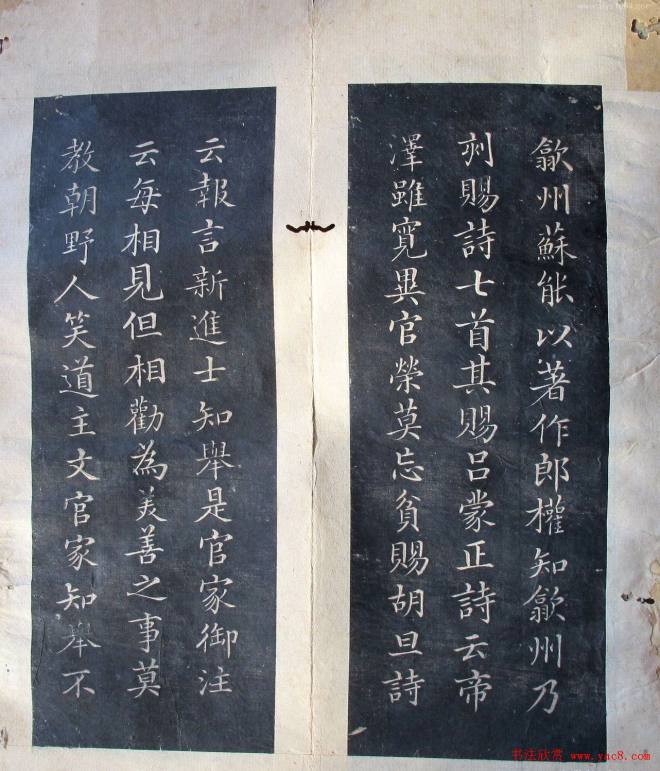 歙州蘇能以著作郎權知歙州乃
刻賜詩七首其賜呂蒙正詩云帝
澤雖寬異官榮莫忘貧賜胡旦詩
云報言新進士知舉是官家御注
云每相見但相勸為美善之事莫
教朝野人笑道主文官家知舉不
书法欣赏 www.yac8.com